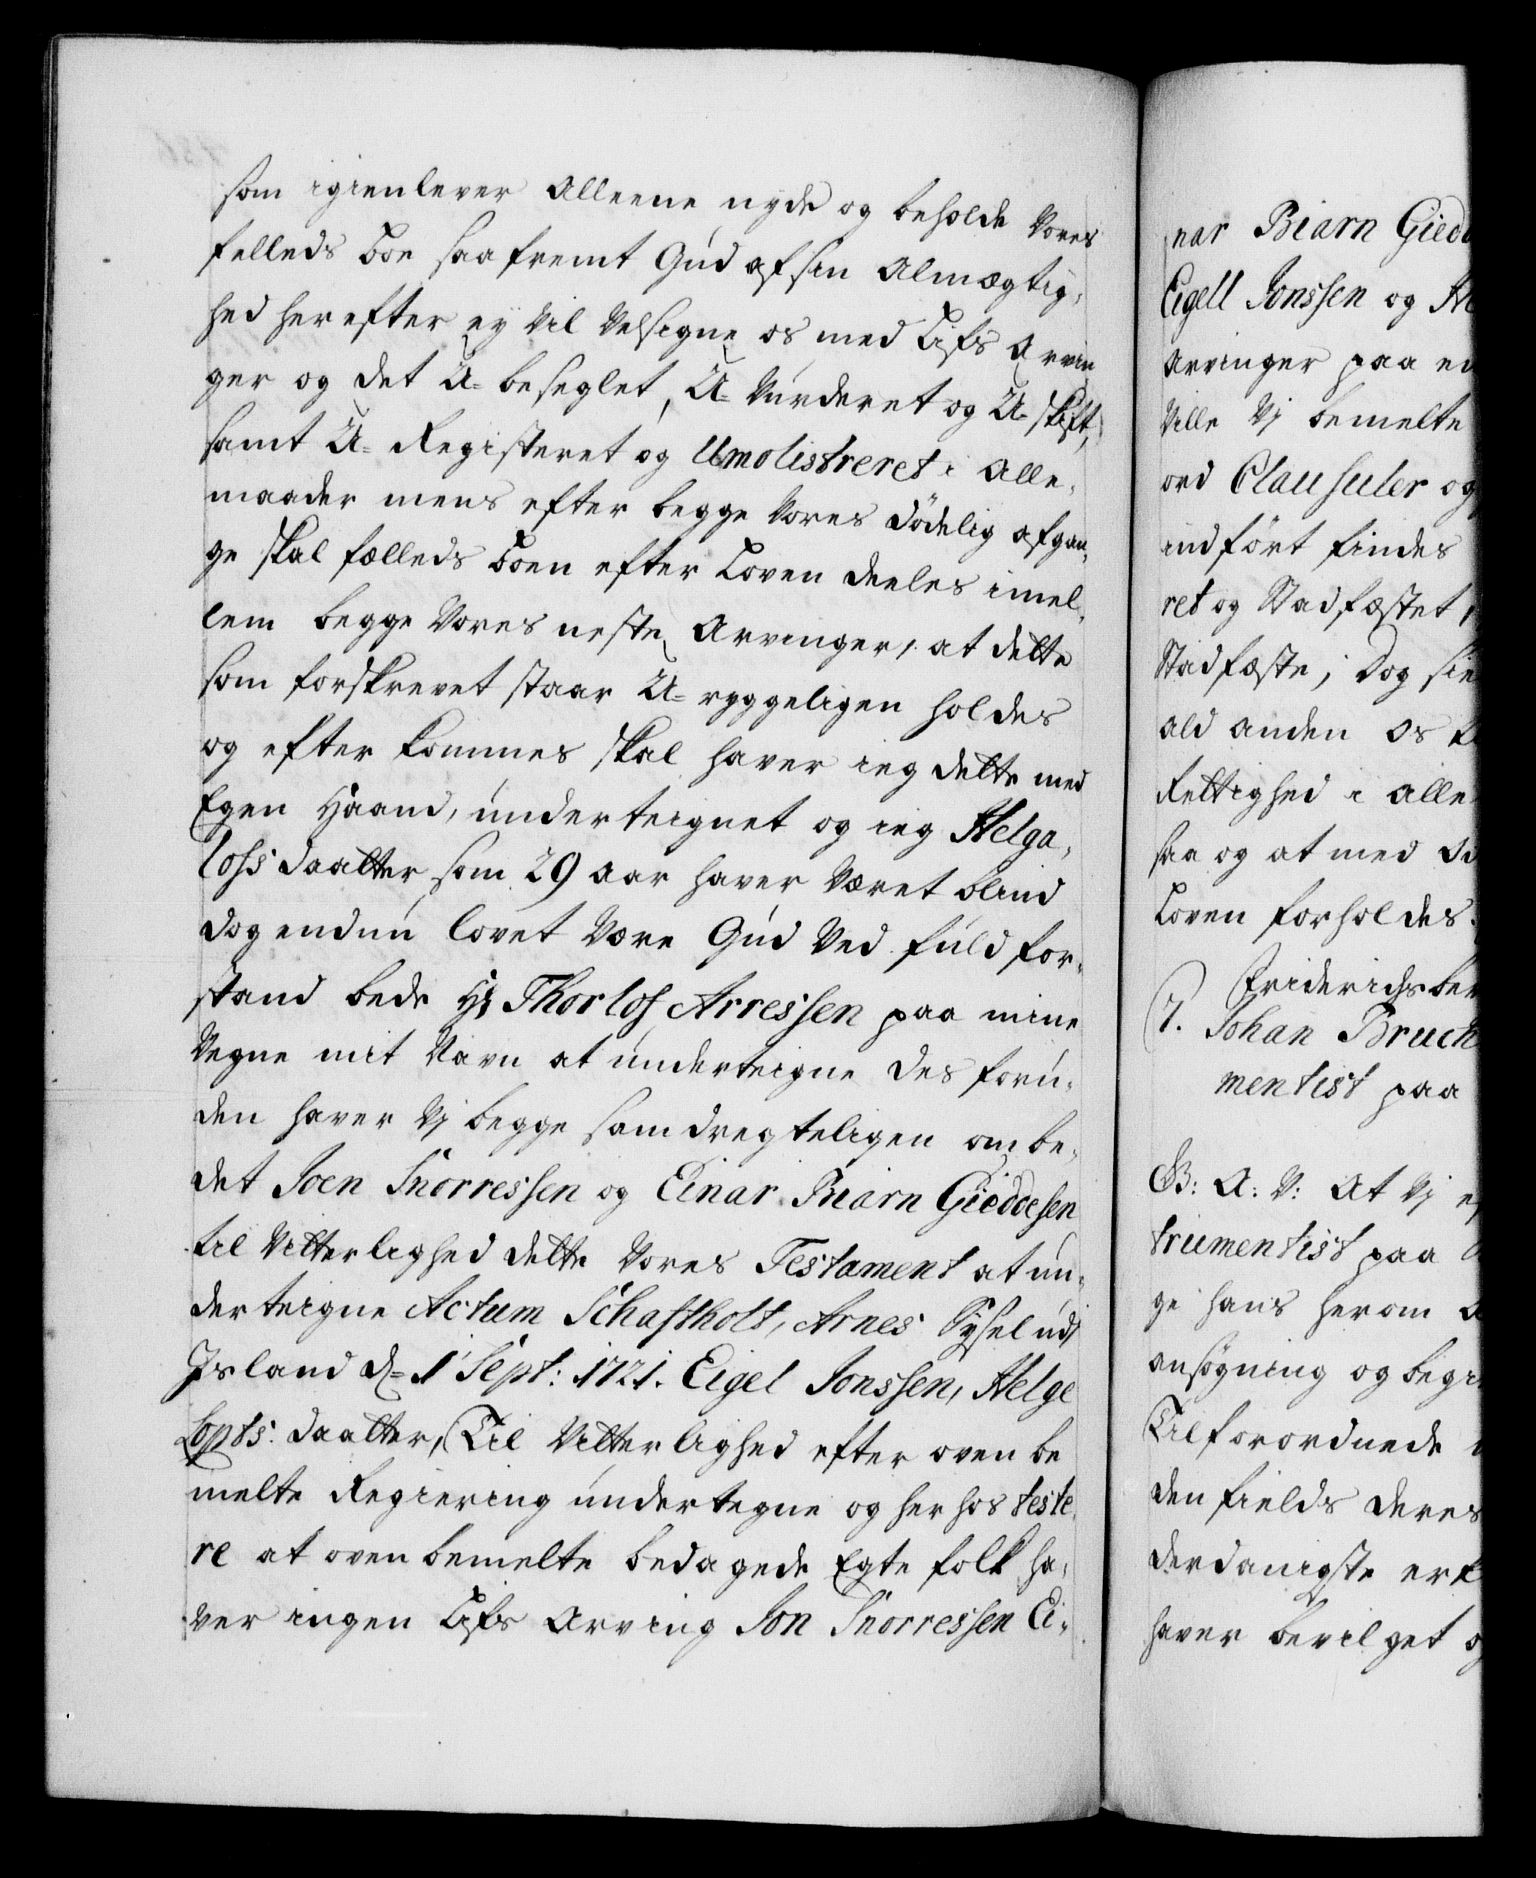 som igienlever Alleene nyde og beholde Vores
felleds boe saafremt Gud af sin Almægtig-
hed herefter ey Vil Velsigne os med Lifs Arvin
ger og det U-beseglet, U-Vurderet og U-skift,
samt U-Registeret og Umolistreret i Alle-
maader mens efter begge Vores dödelig afgan-
ge skal fælleds boen efter Loven deeles imel-
lem begge Vores neste Arvinger, at dette
som forskrevet staar U-ryggeligen holdes
og efter kommes skal haver ieg dette med
Egen Haand, underteignet og ieg Helga,
Lofs daatter som 29 aar haver Været blind
dog endnu lovet Være Gud Ved fuld for-
stand bede Hr Thorlof Arressen paa mine
Vegne mit Navn at underteigne des foru-
den haver Vj begge samdregteligen ombe-
det Joen Snorressen og Einar Biarn Gieddesen
til Vitterlighed dette Vores Testament at un-
derteigne Actum Schaftholt, Arnes Sysel udj
Island d= 1 Sept: 1721. Eigel Jonssen, Helge
Lopts daatter, Til Vitterlighed efter oven be
melte Regiering undertegne og her hos teste
re at ovenbemelte bedagede Egte folk ha-
ver ingen Lifs Arving Jon Snorressen Ei-
nar Biarn Giedd
Eigell Jonssen og He
Arvinger paa en
Ville Vj bemelte
ord Clausuler og
indfört findes
ret og Stadfæstet,
Stadfæste; Dog
ald anden Os
Rettighed i alle
saa og at med
Loven forholdes.
Friderichsber
7. Johan Bruch
mentist paa
G: A: V: At Vj
trumentist paa
ge hans herom
ansögning og begi
Tilforordnede
denfields deres
derdanigste erk
haver bevilget og